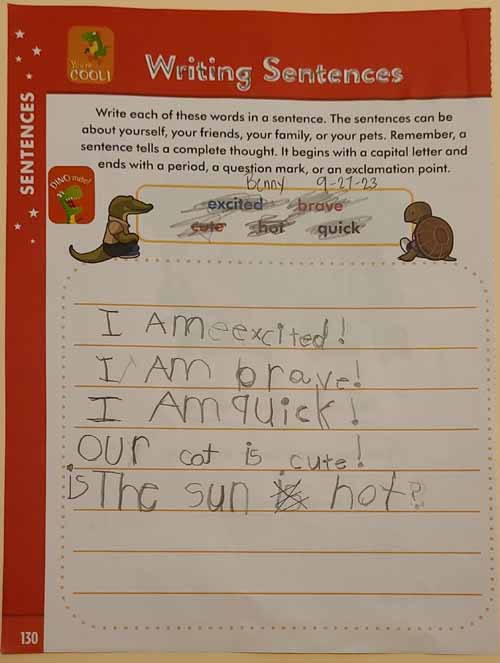 You're
COOL!
Writing Sentences
SENTENCES
Write each of these words in a sentence. The sentences can be
about yourself, your friends, your family, or your pets. Remember, a
sentence tells a complete thought. It begins with a capital letter and
ends with a period, a question mark, or an exclamation point.
DINO-mite!
Benny 9-27-23
excited brave
cute hot quick
I AM eexcited!
I AM brave!
I AM quick!
OUr cat is cute!
is The sun is hot?
130